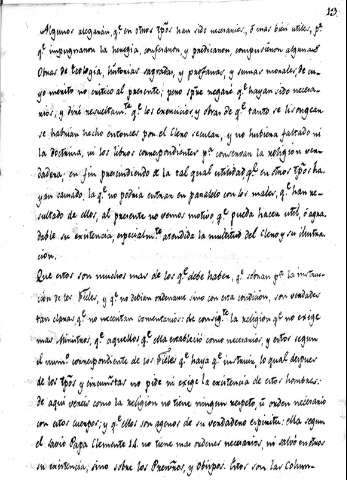 123.
Algunos alegarán, q.e en otros tpõs han sido necesarios, ó mas bien utiles, p.a
q.e impugnaron la heregía, confesaron, y predicaron, compusieron algunas
Obras de teología, historias sagradas, y profanas, y sumas morales, de cu-
yo merito no critico al presente; pero spre negaré q.e hayan sido necesa-
rios, y diré resueltam.te q.e los exercicios, y obras de q.e tanto se lisongean
se habrian hecho entonces por el Clero secular, y no hubiera faltado ni
la doctrina, ni los libros correspondientes p.a conservar la religion ver-
dadera; en fin prescindiendo de la tal qual utilidad q.e en otros tpõs ha-
yan causado, la q.e no podria entrar en paralelo con los males, q.e han re-
sultado de ellos, al presente no vemos motivo, q.e pueda hacer util, ó agra-
dable su existencia especialm.te atendida la multitud del Clero y su ilustra-
cion.
Que estos son muchos mas de los q.e debe haber, q.e sobran p.a la instruc-
ción de los Fieles, y q.e no debian ordenarse sino con esta condicion, son verdades
tan claras q.e no necesitan comentarios: de consig.te la religion q.e no exige
mas Ministros, q.e aquellos q.e ella estableció como necesarios, y estos segun
el num.o correspondiente de los Fieles q.e haya q.e instruir, lo qual despues
de los tpõs y circunstas no pide ni exige la existencia de estos hombres.
De aqui vereis como la religion no tiene ningun respeto, ú orden necesario
con estos cuerpos; y q.e ellos son agenos de su verdadero espiritu: ella segun
el sabio Papa Clemente 14. no tiene mas ordenes necesarios, ni salvó en otros
su existencia, sino sobre los Presvros, y Obispos. Estos son las Colum-